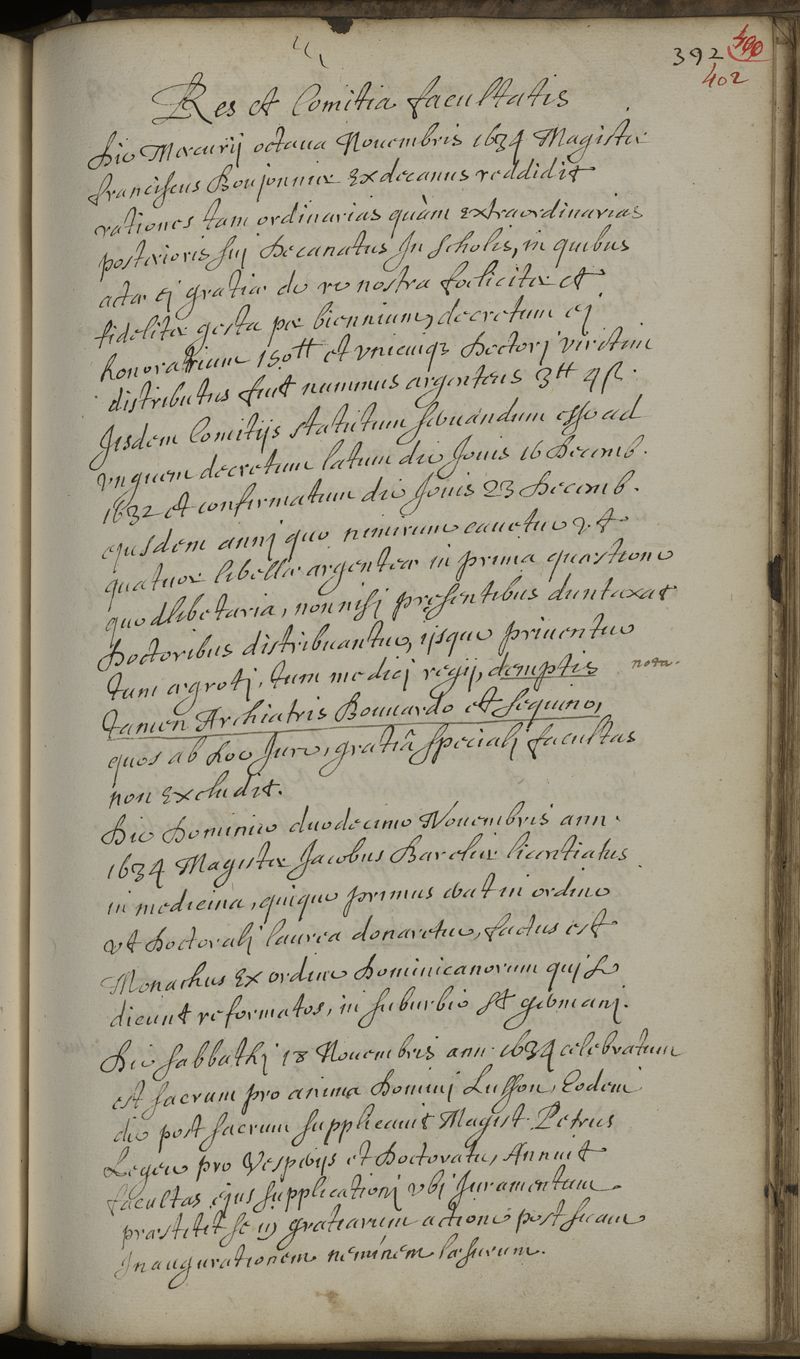 392 400
402
Res et Comitia facultatis
Die Mercurij octava Novembris 1634 Magister
franciscus Boujonnier Exdecanus reddidit
rationes tam ordinarias quàm extraordinarias
posterioris suj Decanatus In Scholis, in quibus
actæ ej gratiæ de re nostra foeliciter et
fideliter gesta per biennium, decretum ej
honorarium 150tt et vnicuiq3 Doctorj viritim
distributus fuit nummus argenteus 3tt 4 ß.
Iisdem Comitijs statutum servandum esse ad
vnguem decretum latum die Jovis 16 Decemb.
1632 et confirmatum die Jovis 23 Decemb.
ejusdem annj quo nimirum cavetur vt
quatuor libellæ argenteæ in prima quæstione
quodlibetaria, non nisj præsentibus duntaxat
Doctoribus distribuantur, ijsque priventur
tum ægrotj, tum medicj regij, demptis nota.
tamen Archiatris Bouvardo et Seguino,
quos ab hoc Jure, gratiâ specialj facultas
non Excludit.
Die Dominico duodecimo Novembris ann.
1634 Magister Jacobus Barelier licentiatus
in medicina, quique primus erat in ordine
vt Doctoralj laurea donaretur, factus est
Monachus Ex ordine Dominicanorum quj se
dicunt reformatos, in suburbio St germanj.
Die Sabbathj 18 Novembris ann. 1634 celebratum
est sacrum pro anima Dominj Lusson, Eodem
die post sacrum supplicavit Magist. Petrus
Leger pro Vesperijs et Doctoratu, Annuit
facultas ejus supplicationj vbj Juramentum
præstitit se in gratiarum actione post suam
Inaugurationem neminem læsurum.